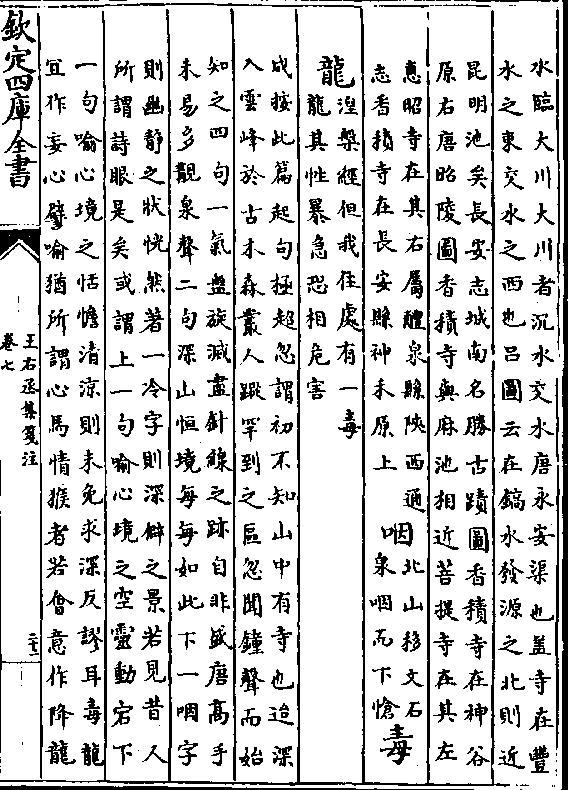 水臨大川大川者沉水交水唐永安渠也蓋寺在豐
水之東交水之西也呂圖云在鎬水發源之北則近
昆明池矣長安志城南名勝古蹟圖香積寺在神谷
原右唐昭陵圖香積寺與麻池相近菩提寺在其左
惠昭寺在其右屬醴泉縣陝西通
志香積寺在長安縣神禾原上
咽
北山移文石
泉咽而下愴
毒
龍
涅槃經但我住處有一毒
龍其性暴急恐相危害
成按此篇起句極超忽謂初不知山中有寺也迨深
入雲峰於古木森叢人蹤罕到之區忽聞鐘聲而始
知之四句一氣盤旋滅盡針線之跡自非盛唐高手
未易多覯泉聲二句深山恒境每每如此下一咽字
則幽靜之狀恍然著一冷字則深僻之景若見昔人
所謂詩眼是矣或謂上一句喻心境之空靈動宕下
一句喻心境之恬憺清涼則未免求深反謬耳毒龍
宜作妄心譬喻猶所謂心馬情猴者若會意作降龍
欽定四庫全書
王右丞集箋注
卷七